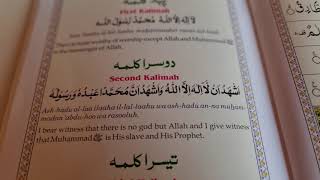 پہلا کلمہ
First Kalimah
لَا اِلٰهَ اِلَّا اللهُ مُحَمَّدٌ رَّسُوْلُ اللهِ
There is none worthy of worship except Allah and Muhammad ﷺ
is the messenger of Allah.
دوسرا کلمہ
Second Kalimah
اَشْهَدُ اَنْ لَّا اِلٰهَ اِلَّا اللهُ وَاَشْهَدُ اَنَّ مُحَمَّدًا عَبْدُهٗ وَرَسُوْلُهٗ
Ash hadu al-laa ilaaha il-lal-laahu wa ash-hadu an-na muham-
madan 'abdu-hoo wa rasooluh.
I bear witness that there is no god but Allah and I give witness
that Muhammad ﷺ is His slave and His Prophet.
تیسرا کلمہ